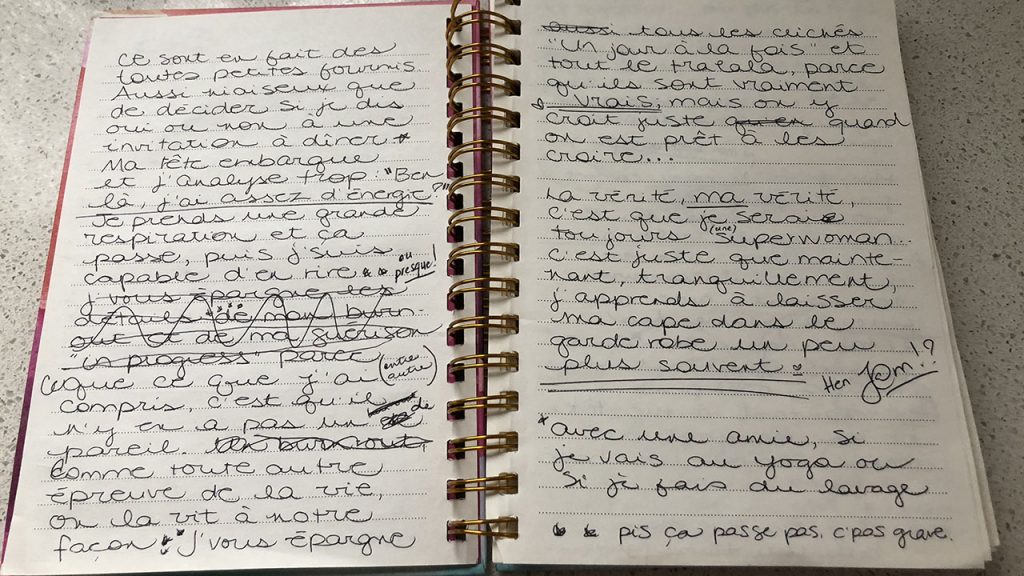 ce sont en fait des
toutes petites fournis
Aussi niaiseux que
de décider si je dis
oui ou non à une
invitation à dîner.*
Ma tête embarque
et j'analyse trop: "Ben
là, j'ai assez d'énergie?"
Je prends une grande
respiration et ça
passe, puis j'suis
capable d'en rire ** ou presque!
j'vous épargne les
détails de mon burn-
out et de ma guérison
"in progress" parce
(Que ce que j'ai (entre autre)
compris, c'est qu'il
n'y en a pas un de
pareil. Un burn out,
Comme toute autre
épreuve de la vie,
on la vit à notre
façon. J'vous épargne
aussi tous les clichés
"Un jour à la fois" et
tout le tralala, parce
qu'ils sont vraiment
vrais, mais on y
croit juste quand
on est prêt à les
croire...
La vérité, ma vérité,
c'est que je serai
toujours (une) superwoman..
c'est juste que mainte-
nant, tranquillement,
j'apprends à laisser
ma cape dans le
garde robe un peu
plus souvent.
Hen Jam!?
*avec une amie, si
je vais au yoga ou
si je fais du lavage
** pis ça passe pas. c'pas grave.